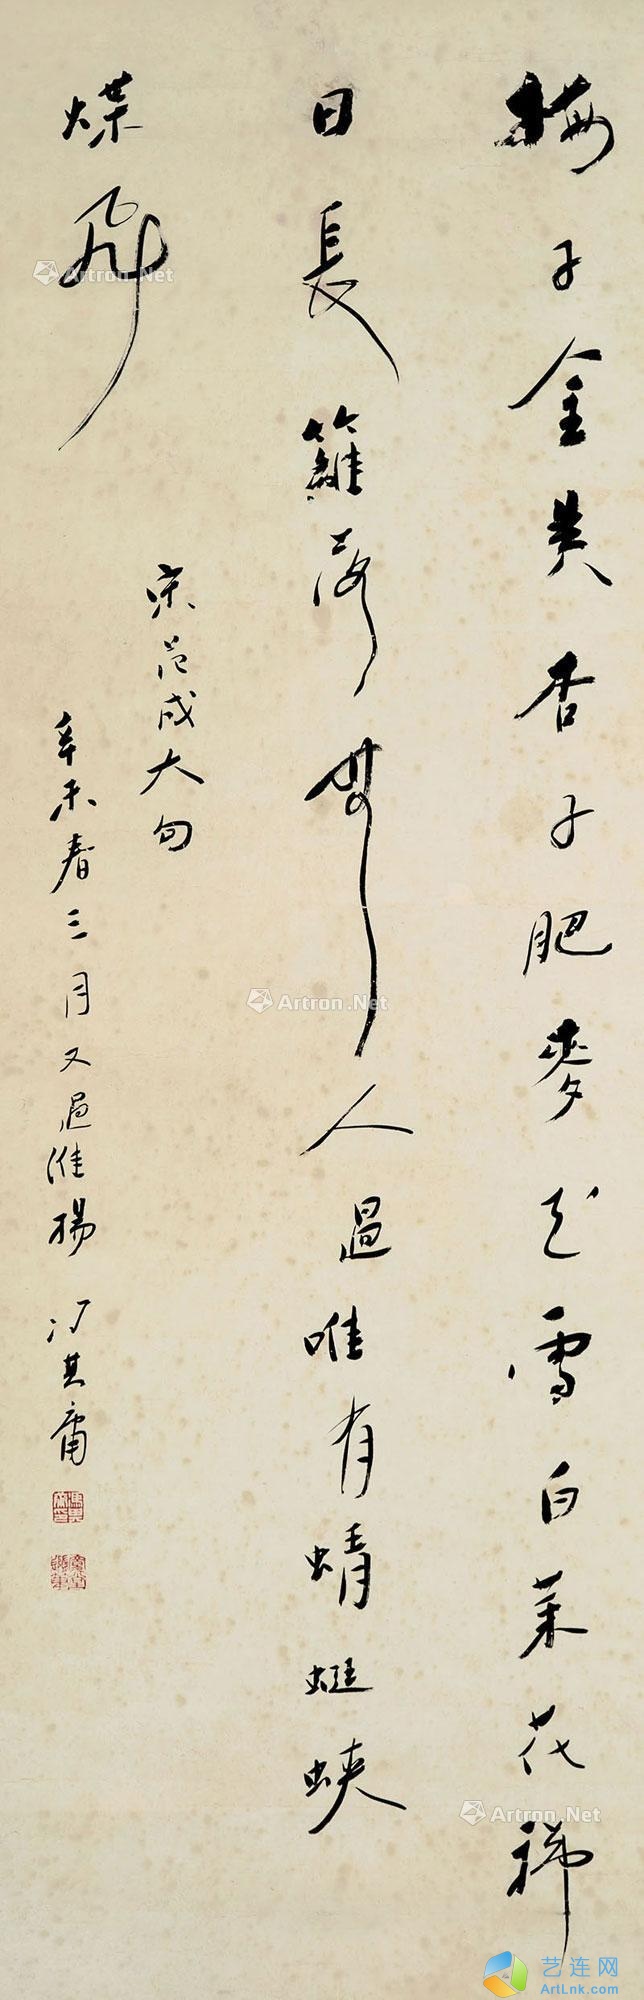 梅子金黄杏子肥麥花雪白菜花稀
日長籬落無人過唯有蜻蜓蛺
蝶飛
宋范成大句
辛未春三月又過淮揚 冯其庸
Artron.Net
Artron.Net
Artron.Net
艺连网
ArtLnk.com